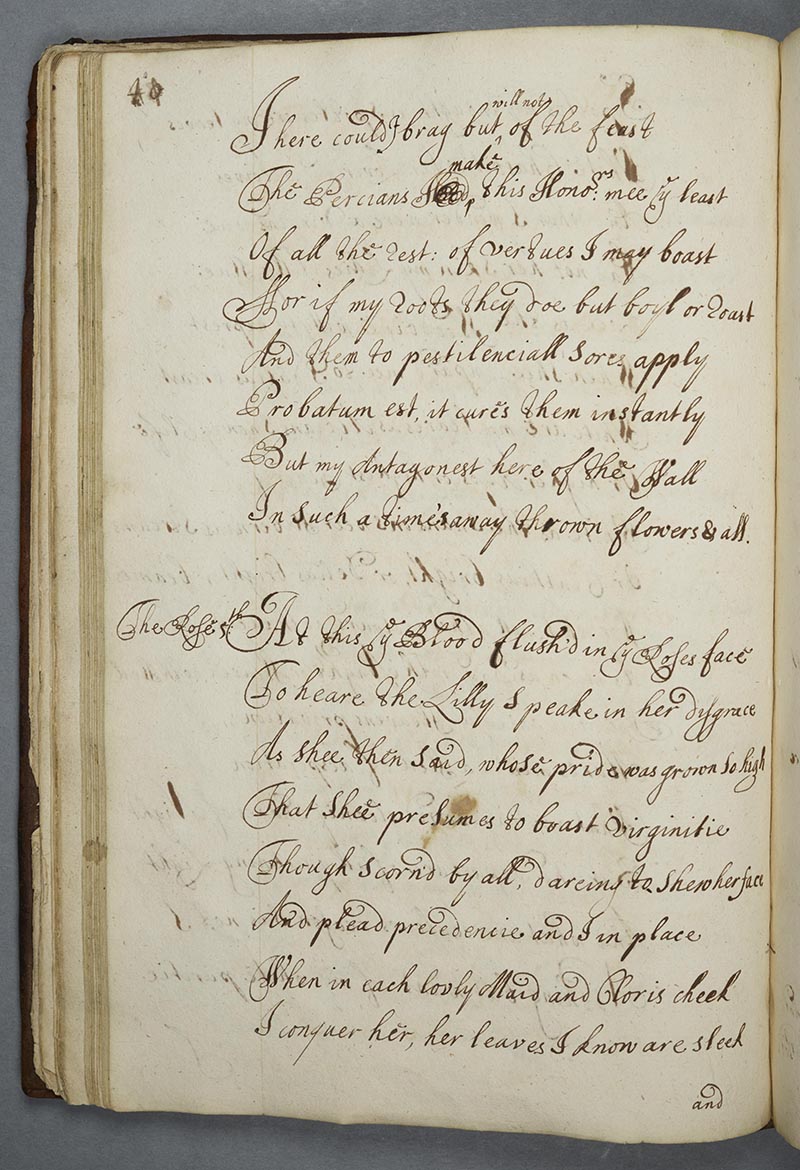 40
Here could I brag but will not of the feast
The Percians make this Honors: mee ye least
Of all the rest: of vertues I may boast
For if my roots they doe but boyl or roast
And them to pestilenciall sores apply
Probatum est, it cures them instantly
But my Antagonest here of the Wall
In such a time's away thrown flowers & all.
The Rose 5th: At this ye Blood flush'd in ye Roses face
To heare the Lilly speake in her disgrace
As shee then said, whose pride was grown so high
That shee presumes to boast virginitie
Though scorn'd by all, dareing to shew her face
And plead precedencie and I in place
When in each lovly Maid and Cloris cheek
I conquer her, her leaves I know are sleek
and